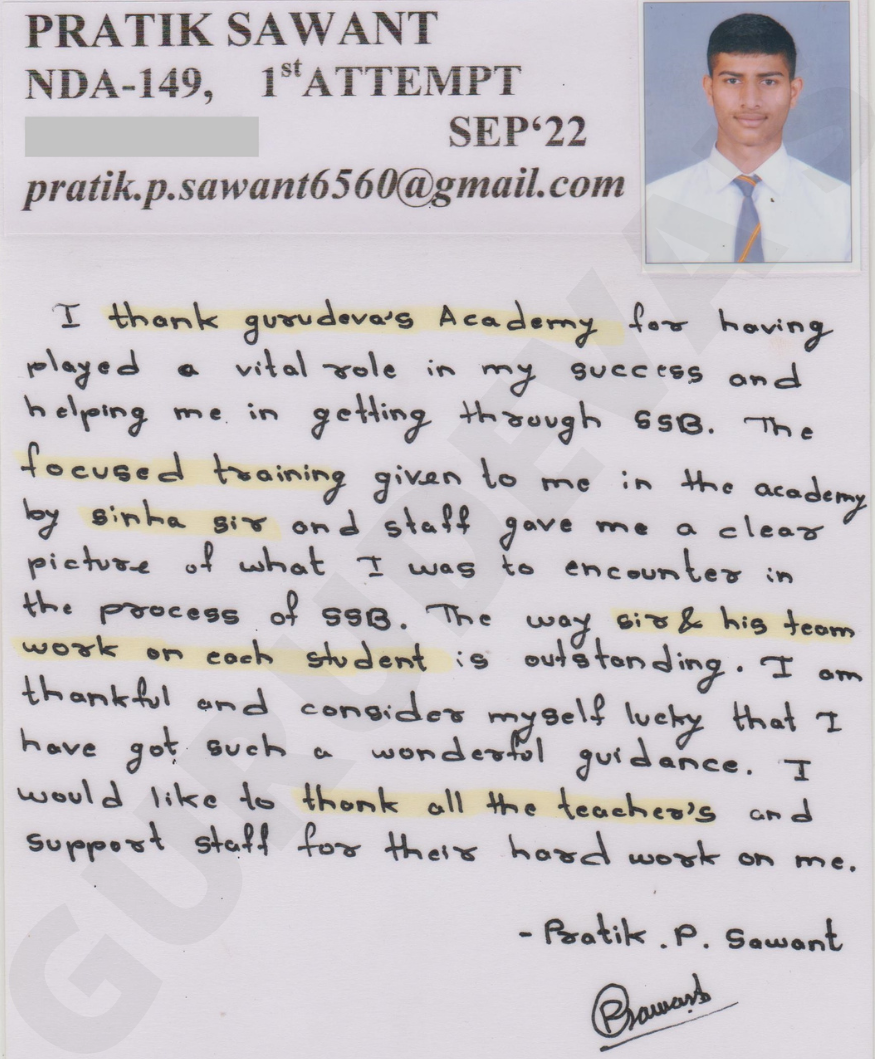 PRATIK SAWANT
NDA-149, 1st ATTEMPT
SEP‘22
pratik.p.sawant6560@gmail.com
I thank gurudeva's Academy for having
played a vital role in my success and
helping me in getting through SSB. The
focused training given to me in the academy
by sinha sir and staff gave me a clear
picture of what I was to encounter in
the process of SSB. The way sir & his team
work on each student is outstanding. I am
thankful and consider myself lucky that I
have got such a wonderful guidance. I
would like to thank all the teacher's and
support staff for their hard work on me.
- Pratik . P. Sawant
PSawant
GURUDEVA